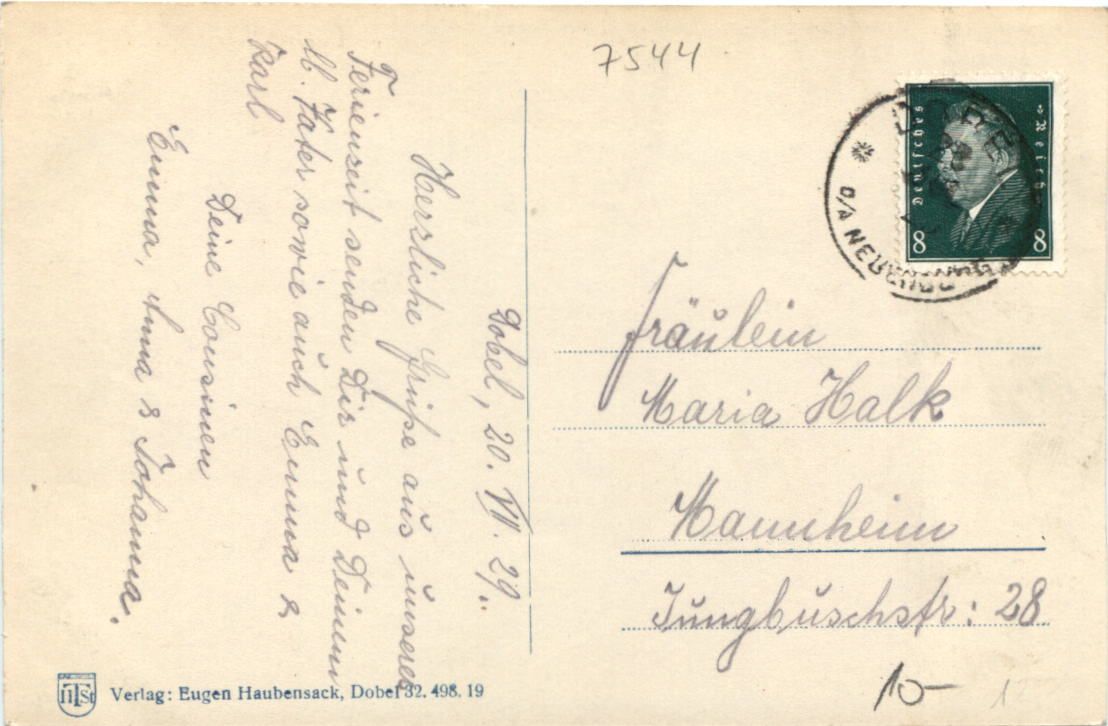 7544
Dobel, 20. VII. 29.
Herzliche Grüße aus unserer
Ferienzeit senden Dir und Deinem
lb. Vater sowie auch Emma &
Karl
Deine Cousinen
Emma, Anna & Johanna.
Deutsches Reich
8 8
DOBEL
O/A NEUENBÜRG
Fräulein
Maria Halk
Mannheim
Jungbuschstr: 28
10-
HTSt
Verlag: Eugen Haubensack, Dobel 32. 498. 19